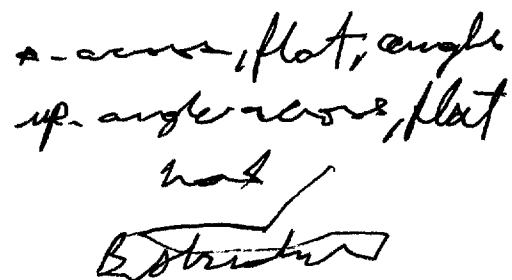 A-across, flat, angle
up-angle across, flat
not
B structure